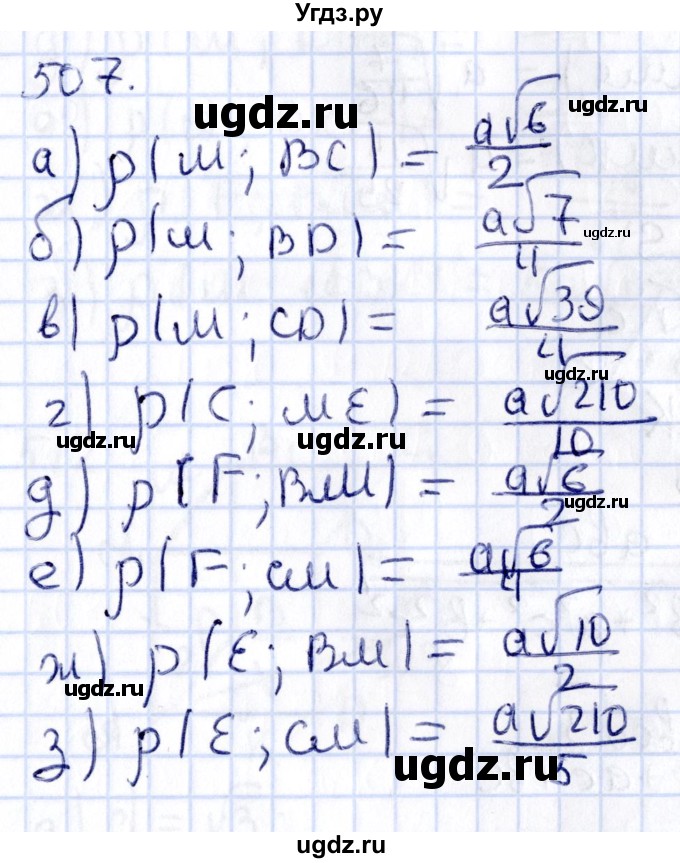 Угдз.ру
507.
ugdz.ru
ugdz.ru
а) ρ(M; BC) = a√6/2
б) ρ(M; BD) = a√7/4
ugdz.ru
в) ρ(M; CD) = a√39/4
ugdz.ru
г) ρ(C; ME) = a√210/10
ugdz.ru
ugdz.ru
д) ρ(F; BM) = a√6/2
ugdz.ru
е) ρ(F; CM) = a√6/4
ж) ρ(E; BM) = a√10/2
ugdz.ru
з) ρ(E; CM) = a√210/5
ugdz.ru
ugdz.ru